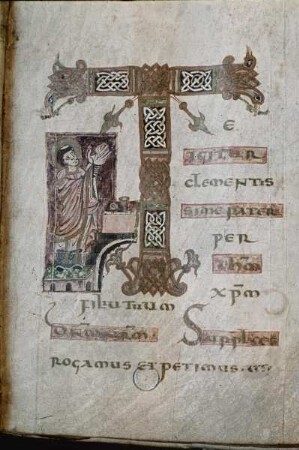 Te
IGITUR
clementis
sime pater
PER
ihm
xpm
filium tuum
dnm nrm Supplices
ROGAMUS ET PETIMUS. uti